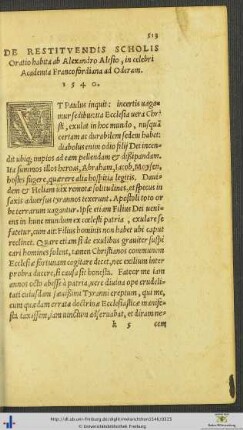 513
DE RESTITVENDIS SCHOLIS
Oratio habita ab Alexandro Alesio, in celebri
Academia Francofordiana ad Oderam.
1540.
VT Paulus inquit: incertis uaga-
mur sedibus, ita Ecclesia uera Chri
sti, exulat in hoc mundo, nusquā
certam ac durabilem sedem habet:
diabolus enim odio filij Dei incen-
dit ubiq; impios ad eam pellendam & dissipandam.
Ita summos illos heroas, Abraham, Iacob, Moysen,
hostes fugere, quærere alia hospitia legitis. Daui-
dem & Heliam uix remotæ solitudines, et specus in
saxis aduersus tyrannos texerunt. Apostoli toto or
be terrarum uagantur. Ipse etiam Filius Dei ueni-
ens in hunc mundum ex cœlesti patria, exulare se
fatetur, cum ait: Filius hominis non habet ubi caput
reclinet. Quare etiam si de exulibus grauiter suspi
cari homines solent, tamen Christianos communem
Ecclesiæ fortunam cogitare decet, nec exilium inter
probra ducere, si causa sit honesta. Fateor me iam
annos octo abesse à patria, uere diuina ope crudeli-
tati cuiusdam sæuissimi Tyranni ereptum, qui me,
cum quædam errata doctrinæ Ecclesiasticæ modestè
taxassem, iam uinctum asseruabat, et diram ne-
k 5 cem
© Universitätsbibliothek Freiburg